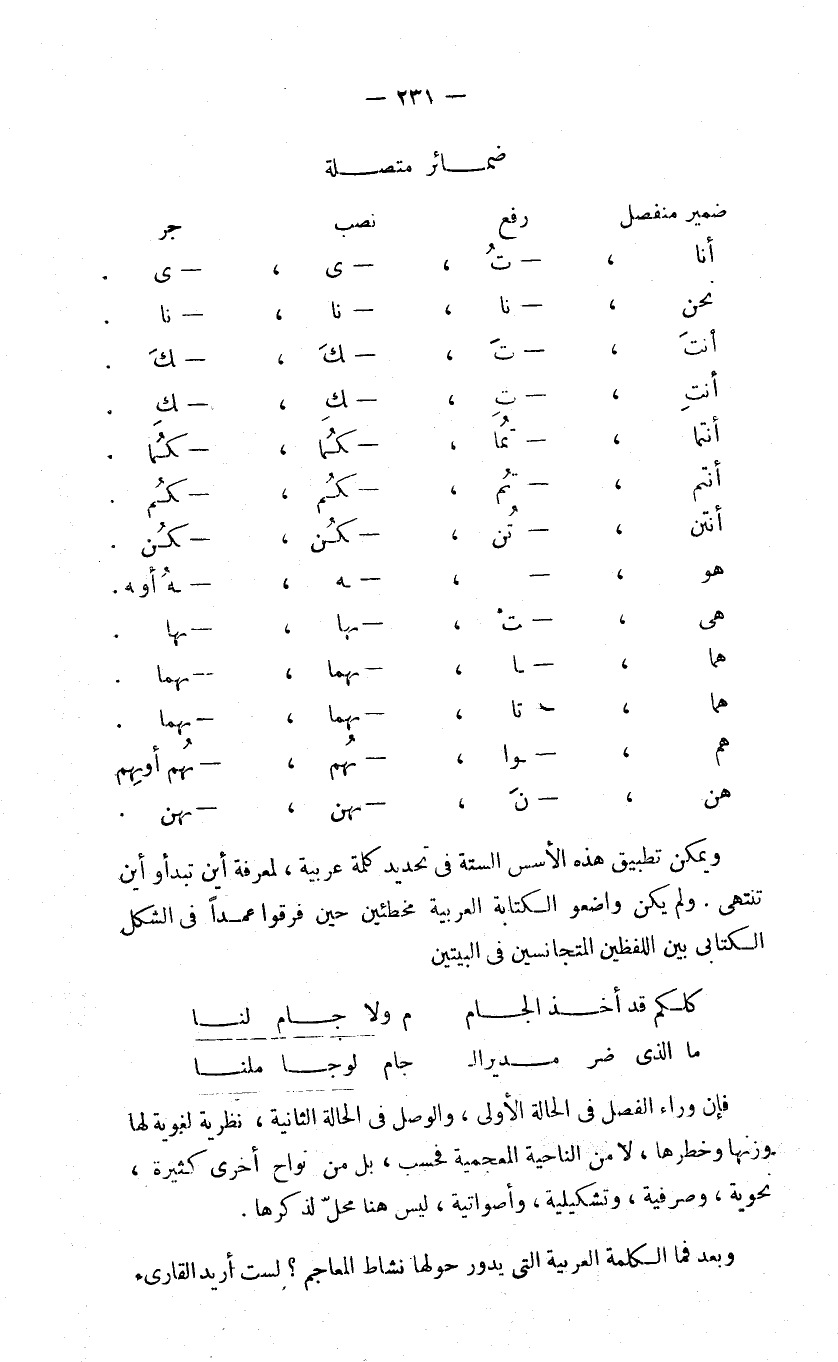 — ٢٣١ —
ضمائر متصلة
ضمير منفصل رفع نصب جر
أنا ، — تُ ، — ى ، — ى .
نحن ، — نا ، — نا ، — نا .
أنتَ ، — تَ ، — كَ ، — كَ .
أنتِ ، — تِ ، — كِ ، — كِ .
أنتما ، — تُما ، — كُما ، — كُما .
أنتم ، — تُم ، — كُم ، — كُم .
أنتن ، — تُن ، — كُن ، — كُن .
هو ، — ، — ـه ، — ـهُ أو ه .
هى ، — تْ ، — ـها ، — ـها .
هما ، — ـا ، — ـهما ، — ـهما .
هما ، — تا ، — ـهما ، — ـهما .
هم ، — ـوا ، — ـهُم ، — ـهُم أو ـهِم
هن ، — نَ ، — ـهن ، — ـهن .
ويمكن تطبيق هذه الأسس الستة فى تحديد كلمة عربية ، لمعرفة أين تبدأ و أين
تنتهى . ولم يكن واضعو الكتابة العربية مخطئين حين فرقوا عمداً فى الشكل
الكتابى بين اللفظين المتجانسين فى البيتين
كلكم قد أخذ الجام م ولا جام لنا
ما الذى ضر مدير الـ جام لو جا ملنا
فإن وراء الفصل فى الحالة الأولى ، والوصل فى الحالة الثانية ، نظرية لغوية لها
وزنها وخطرها ، لا من الناحية المعجمية فحسب ، بل من نواح أخرى كثيرة ،
نحوية ، وصرفية ، وتشكيلية ، وأصواتية ، ليس هنا محلّ لذكرها .
وبعد فما الكلمة العربية التى يدور حولها نشاط المعاجم ؟ لست أريد القارىء